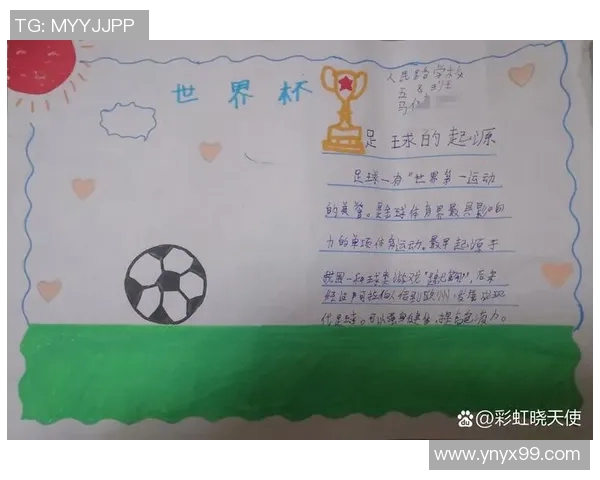 TG: MYYJJPP
世界杯
人民路学校
五
马
足球的起源
足球一有"世界第一运动
的美誉。是全球体育界最具影响
力的单项体育运动。最早起源于
我国一种球类游戏"蹴鞠",后来
经过阿拉伯人传到欧洲。发展成现
代足球。可以强身健体,提高活力。
@彩虹晓天使
www.ynyx99.com